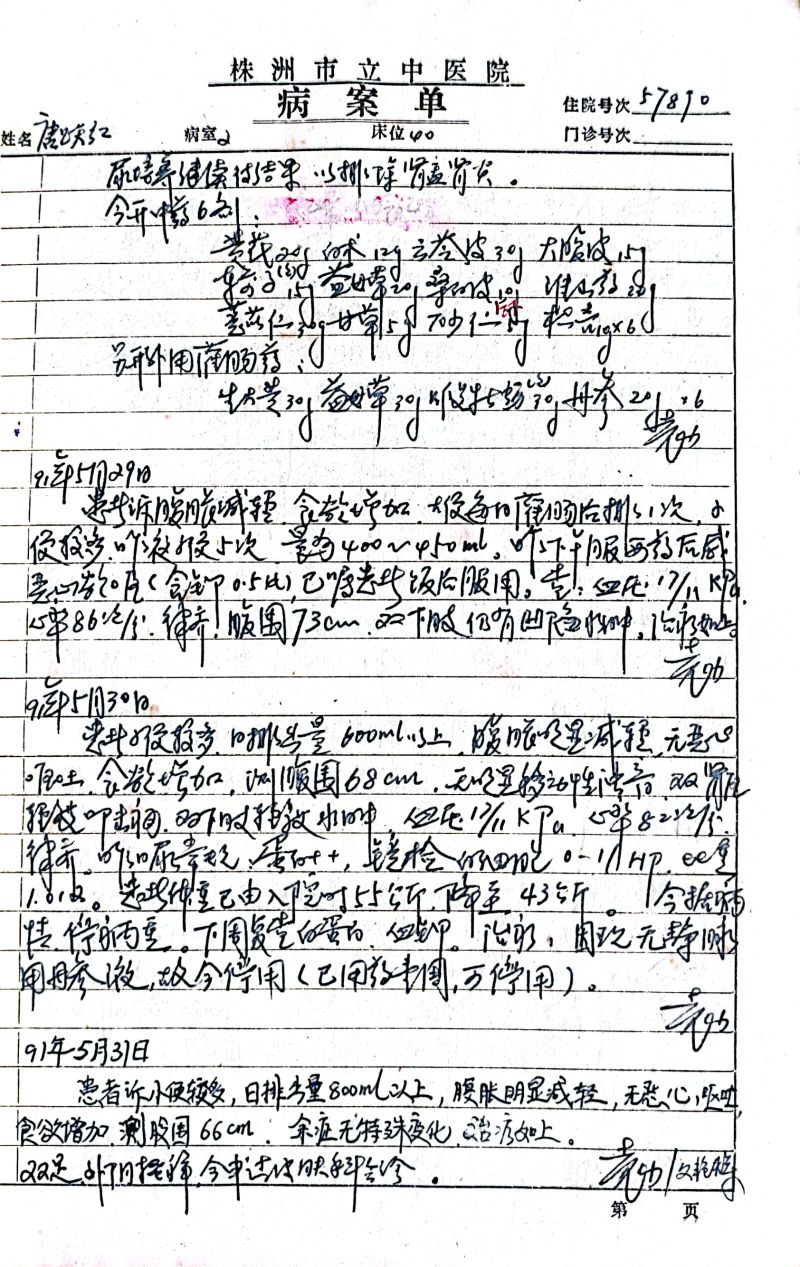 株洲市立中医院
病案单
住院号次 57890
姓名 唐 红 病室2 床位40 门诊号次
尿培养继续待结果 以排除肾盂肾炎。
今开中药6剂：
黄芪20g 白术12g 云苓皮30g 大腹皮15g
车前子15g 益母草20g 桑白皮10g 淮山药20g
薏苡仁30g 甘草5g 砂仁5g ×6
另开外用灌肠药：
生大黄30g 益母草30g 煅牡蛎30g 丹参20g ×6
91年5月29日
患者诉腹胀减轻，食欲增加，大便每日灌肠后排1次，小
便较多，昨夜小便5次，量为400~450ml。昨下午服西药后感
恶心欲吐（含钾0.5%），已嘱患者饭后服用。查：血压17/11KPa，
心率86次/分，律齐，腹围73cm，双下肢仍有凹陷性水肿。治疗如上。
91年5月30日
患者小便较多，日排出量600ml以上，腹胀明显减轻，无恶心
呕吐，食欲增加，测腹围68cm，无明显移动性浊音，双肾区
轻度叩击痛，双下肢轻微水肿，血压17/11KPa，心率82次/分，
律齐。昨日尿常规：蛋白++，镜检 白细胞0-1/HP，比重
1.012。患者体重已由入院时55公斤下降至43公斤。今据病
情，停病重。下周复查白蛋白、血钾。治疗：因现无静脉
用丹参液，故今停用（已用药半周，可停用）。
91年5月31日
患者诉小便较多，日排出量800ml以上，腹胀明显减轻，无恶心，呕吐，
食欲增加，测腹围66cm，余症无特殊变化，治疗如上。
双足 今申请皮肤科会诊。
第 页